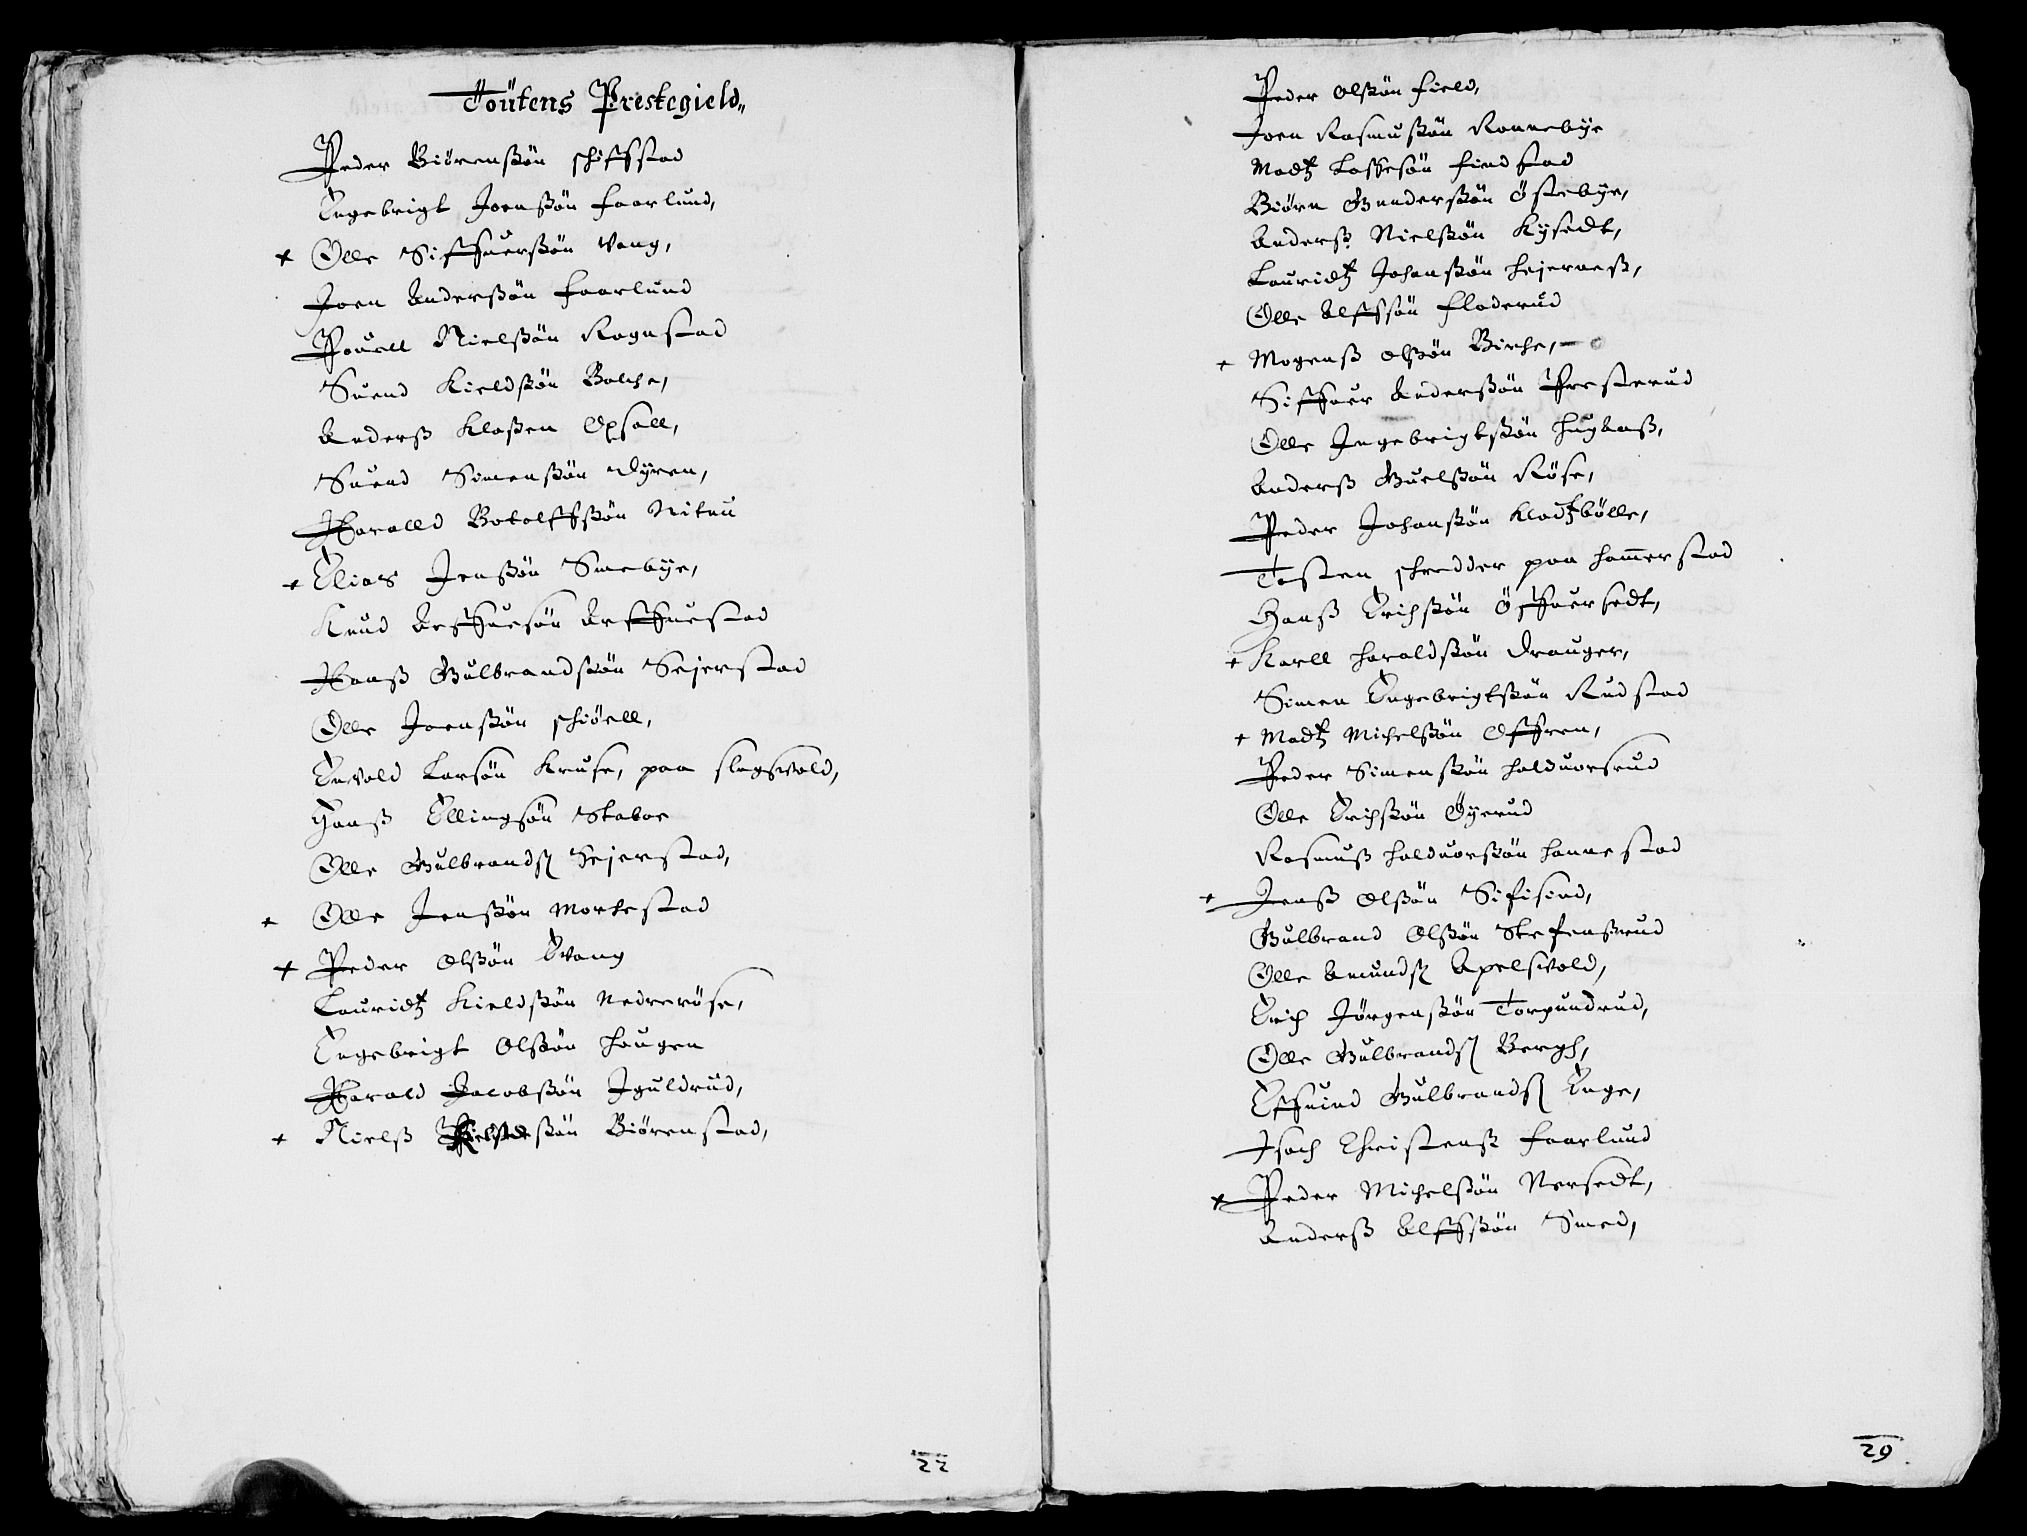 Toütens Prestegield,,
Peder Biörenßön schiffstad
Engebrigt Joenßön Faarlund,
+ Olle Siffuerßön Vang,
Joen Anderßön Faarlund
Pouell Nielßön Rognstad
Suend Kieldßön Balche,
Anderß Klaßen Opsall,
Suend Simenßön Dyren,
Haralld Botolffßön Niteu
+ Elias Jenßön Smebÿe,
Knud Arffuesön Arffuestad
Hanß Gulbrandßön Sejerstad
Olle Joenßön schiöell,
Envold Larsön Kruse, paa slagsvold,
Hanß Ellingsön Skaboe
Olle Gulbrandß Sejerstad,
+ Olle Jenßön Morkestad
+ Peder Olßön Evang
Lauridtz Kieldßön Nedreröse,
Engebrigt Olßön Hougen
Harald Jacobßön Jguldrud,
+ Nielß ßön Biörenstad,
22
Peder Olßön Field,
Joen Rasmußön Rannebÿe
Madtz Lassesön Findstad
Biörn Gunderßön Östebÿe,
Anderß Nielßön Kÿsedt,
Lauridtz Johanßön Hejerneß,
Olle Alffsön Fladerud
+ Mogenß Olßön Birche,
Siffuer Anderßön Presterud
Olle Ingebrigtßön Hugaaß,
Anderß Guelßön Röse,
Peder Johanßön Kladtzbölle,
Tosten schredder paa Hammerstad
Hanß Erichßön Öffuersedt,
+ Karll Haraldßön Drauger,
Simen Engebrigtßön Rudstad
+ Madtz Michelßön Offren,
Peder Simenßön Halduorsrud
Olle Erichßön Öyerud
Rasmuß Halduorßön Hannestad
+ Jenß Olßön Sifisind,
Gulbrand Olßön Stefenßrud
Olle Amundß Apelsvold,
Erich Jörgenßön Torpundrud,
Olle Gulbrandß Bergh,
Effuind Gulbrandß Enge,
Isach Christenß Faarlund
+ Peder Michelßön Nersedt,
Anderß Alffßön Smed,
29